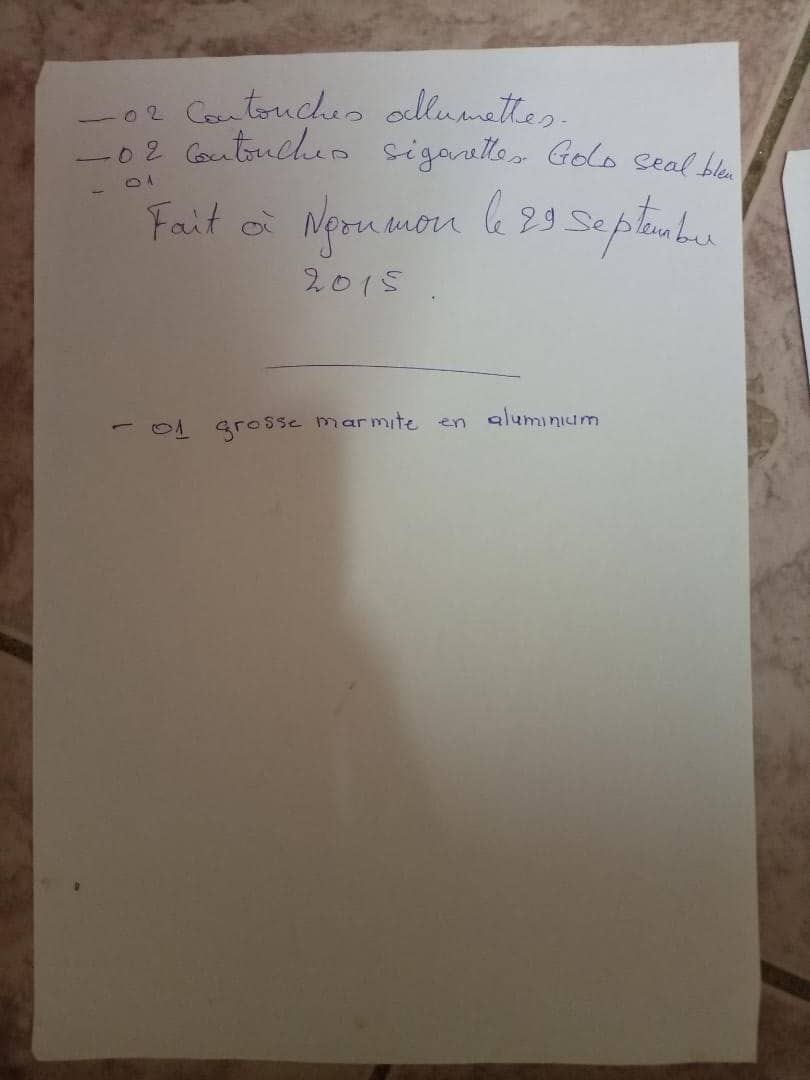 — 02 Cartouches allumettes.
— 02 Cartouches sigarettes. Gold seal bleu
- 01
Fait à Ngoumou le 29 Septembre
2015.
- 01 grosse marmite en aluminium